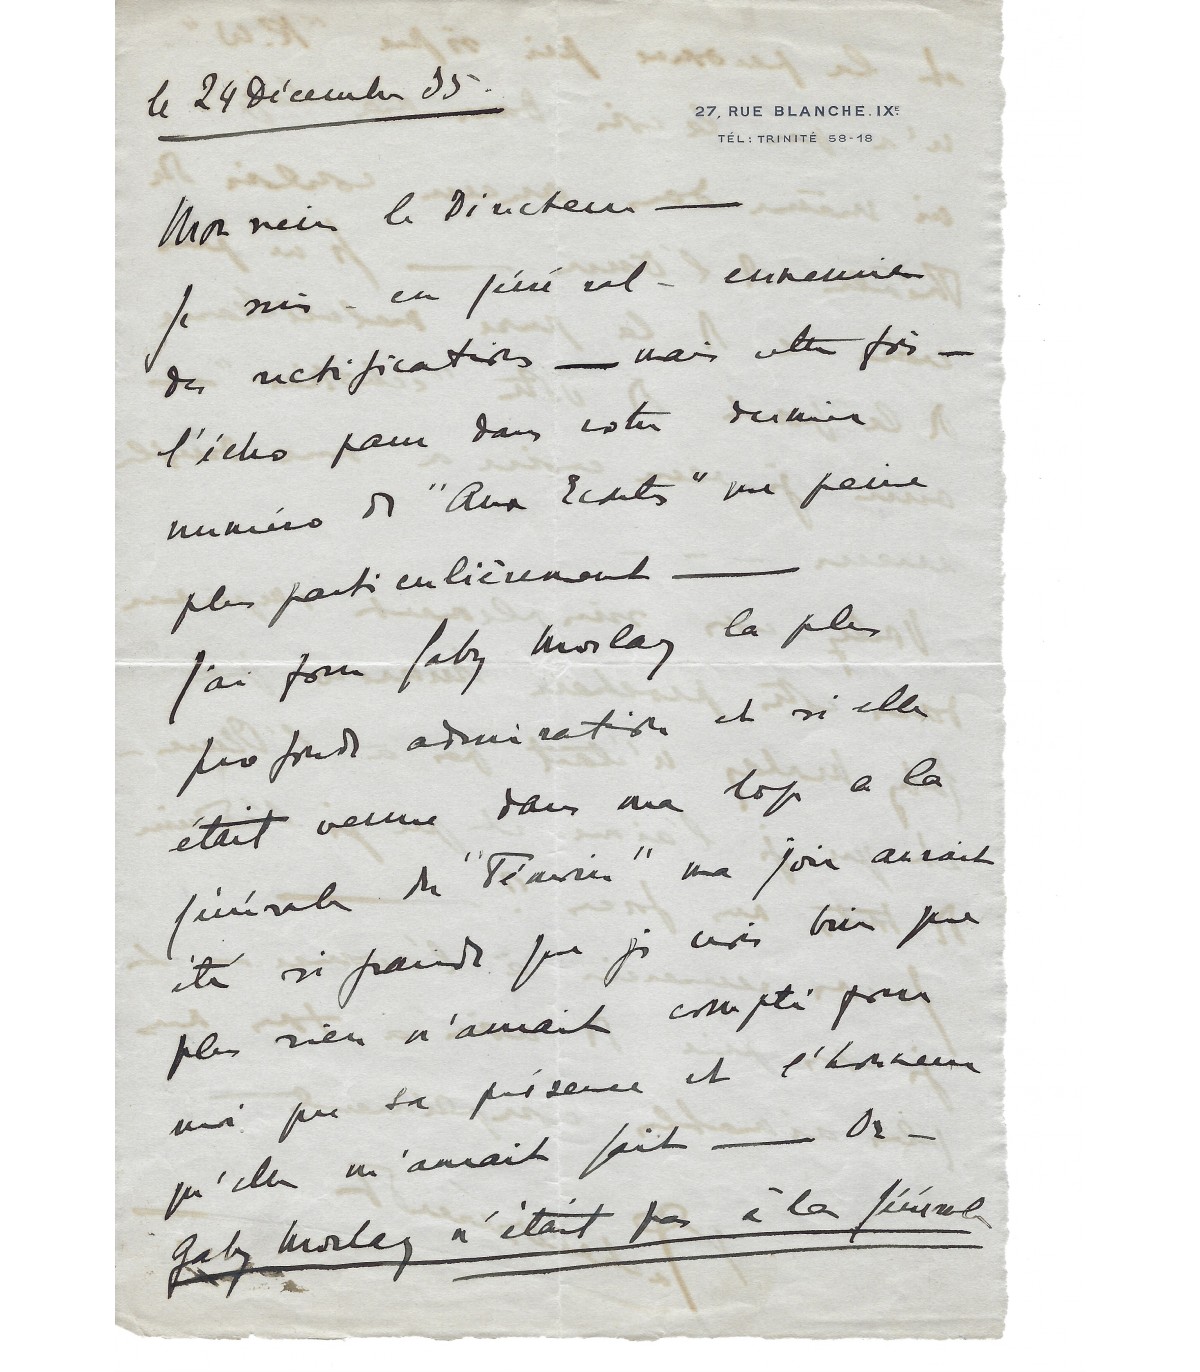 le 24 Décembre 35.
27, RUE BLANCHE. IXE
TÉL : TRINITÉ 58-18
Monsieur le Directeur —
Je suis - en général - ennemie
des rectifications — mais cette fois —
l'écho paru dans votre dernier
numéro de "Aux Ecoutes" me peine
plus particulièrement —
J'ai pour Gaby Morlay la plus
profonde admiration et si elle
était venue dans ma loge a la
générale du "Témoin" ma joie aurait
été si grande que je crois bien que
plus rien n'aurait compté pour
moi que sa présence et l'honneur
qu'elle m'aurait fait — Or —
Gaby Morlay n'était pas à la générale